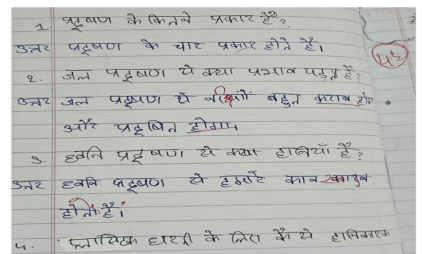 1. प्रदूषण के कितने प्रकार हैं?
उत्तर प्रदूषण के चार प्रकार होते हैं।
२. जल प्रदूषण से क्या प्रभाव पड़ता हैं?
उत्तर जल प्रदूषण से बहुत खराब होगा
और प्रदूषित होगा।
3. ध्वनि प्रदूषण से क्या हानियाँ हैं?
उत्तर ध्वनि प्रदूषण से हमारे कान खराब
होता हैं।
4. प्लास्टिक धरती के लिए कैसे हानिकारक